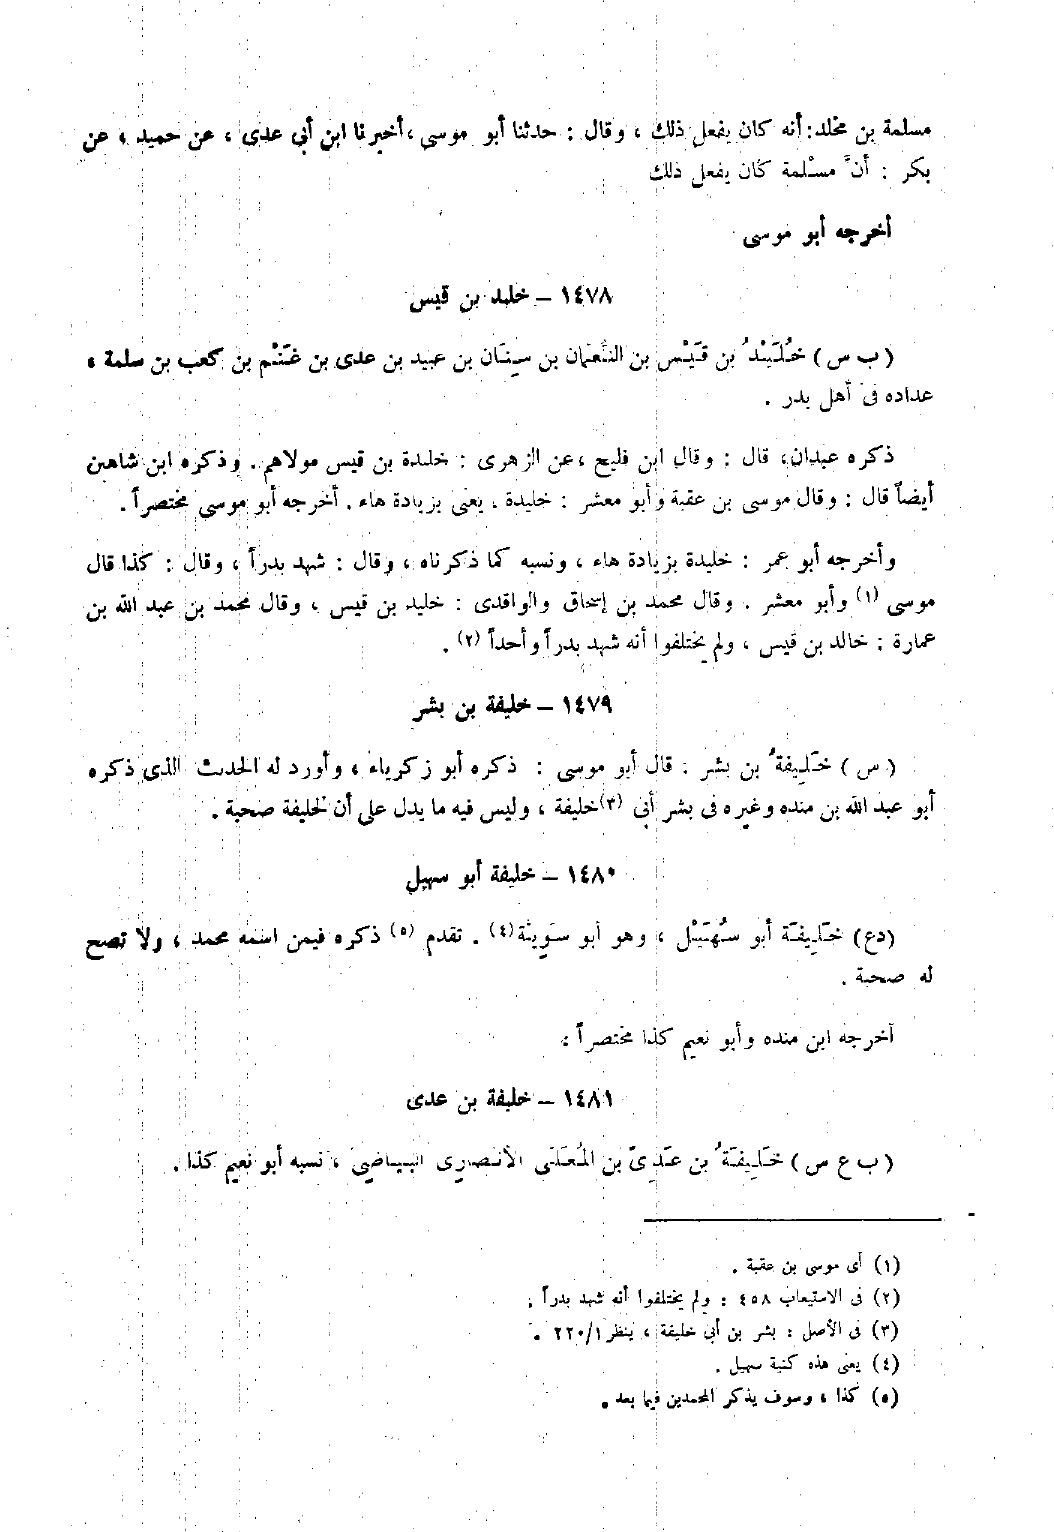 مسلمة بن مخلد: أنه كان يفعل ذلك ، وقال : حدثنا أبو موسى ، أخبرنا ابن أبى عدى ، عن حميد ، عن
بكر : أنَّ مسْلمة كان يفعل ذلك
أخرجه أبو موسى
١٤٧٨ – خليد بن قيس
( ب س ) خُلَيْدُ بن قَيْس بن النُّعْمَان بن سِنَان بن عبيد بن عدى بن غَنْم بن كعب بن سلمة ،
عداده فى أهل بدر .
ذكره عبدان، قال : وقال ابن فليح ، عن الزهرى : خليدة بن قيس مولاهم . وذكره ابن شاهين
أيضاً قال : وقال موسى بن عقبة وأبو معشر : خليدة . يعنى بزيادة هاء . أخرجه أبو موسى مختصراً .
وأخرجه أبو عمر : خليدة بزيادة هاء ، ونسبه كما ذكرناه ، وقال : شهد بدراً ، وقال : كذا قال
موسى (١) وأبو معشر . وقال محمد بن إسحاق والواقدى : خليد بن قيس ، وقال محمد بن عبد الله بن
عمارة : خالد بن قيس ، ولم يختلفوا أنه شهد بدراً وأحداً (٢) .
١٤٧٩ – خليفة بن بشر
( س ) خَلِيفةُ بن بشر : قال أبو موسى : ذكره أبو زكرياء ، وأورد له الحديث الذى ذكره
أبو عبد الله بن منده وغيره فى بشر أبى (٣) خليفة ، وليس فيه ما يدل على أن لخليفة صحبة .
١٤٨٠ – خليفة أبو سهيل
(دع) خَلِيفَة أبو سُهَيْل ، وهو أبو سَوِيئَة (٤) . تقدم (٥) ذكره فيمن اسمه محمد ، ولا تصح
له صحبة .
أخرجه ابن منده وأبو نعيم كذا مختصراً .
١٤٨١ – خليفة بن عدى
( ب ع س ) خَلِيفَةُ بن عَدِىّ بن المُعَلَى الأنصارى البياضى ، نسبه أبو نعيم كذا .
(١) أى موسى بن عقبة .
(٢) فى الاستيعاب ٤٥٨ : ولم يختلفوا أنه شهد بدراً .
(٣) فى الأصل : بشر بن أبى خليفة ، ينظر ٢٢٠/١ .
(٤) يعنى هذه كنية سهيل .
(٥) كذا ، وسوف يذكر المحمدين فيما بعد .